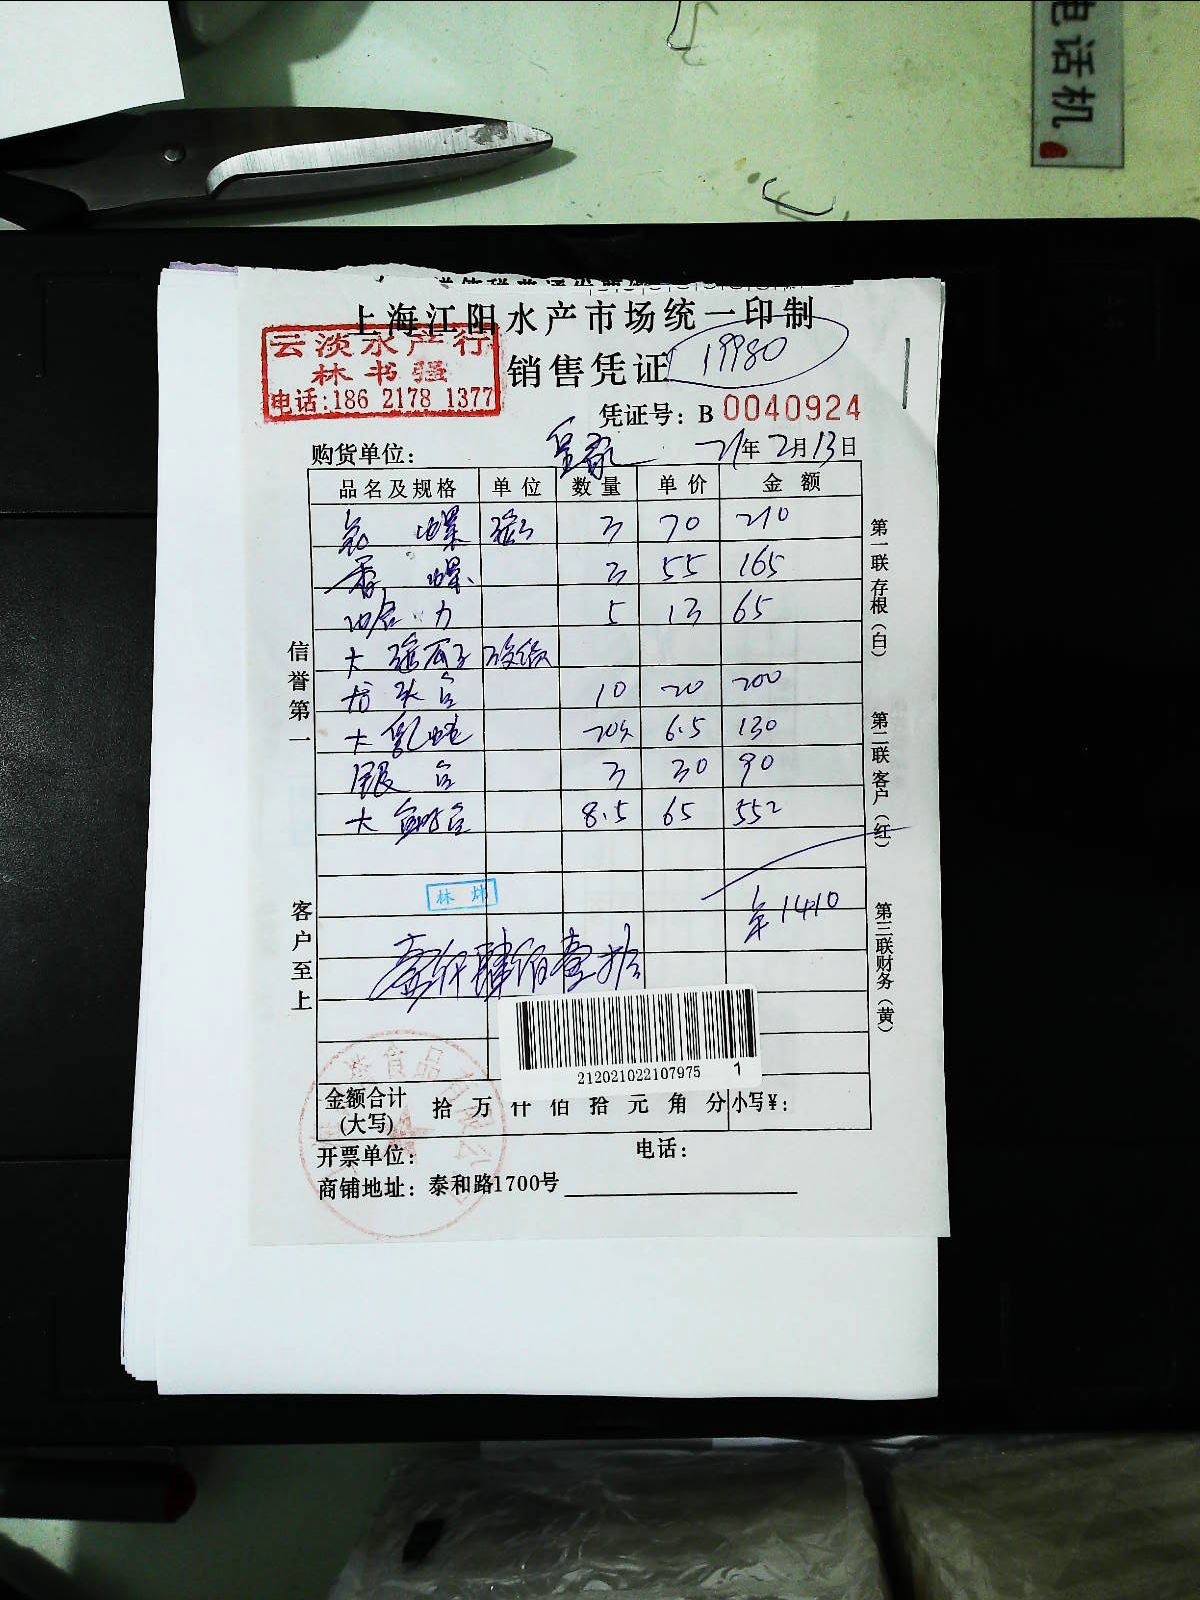 电话机
上海江阳水产市场统一印制
云淡水产行
林书强
电话:186 2178 1377
销售凭证
19980
凭证号: B 0040924
购货单位: 21年2月13日
品名及规格 单位 数量 单价 金额
螺 3 70 210
香螺 3 55 165
蛤力 5 13 65
大
10 20 200
大 20 6.5 130
银 3 30 90
大鲍 8.5 65 552
林炜
1410
壹仟肆佰壹拾
212021022107975 1
金额合计(大写) 拾 万 仟 佰 拾 元 角 分 小写¥:
开票单位: 电话:
商铺地址: 泰和路1700号
信誉第一
客户至上
第一联存根(白)
第二联客户(红)
第三联财务(黄)
食品有限公司